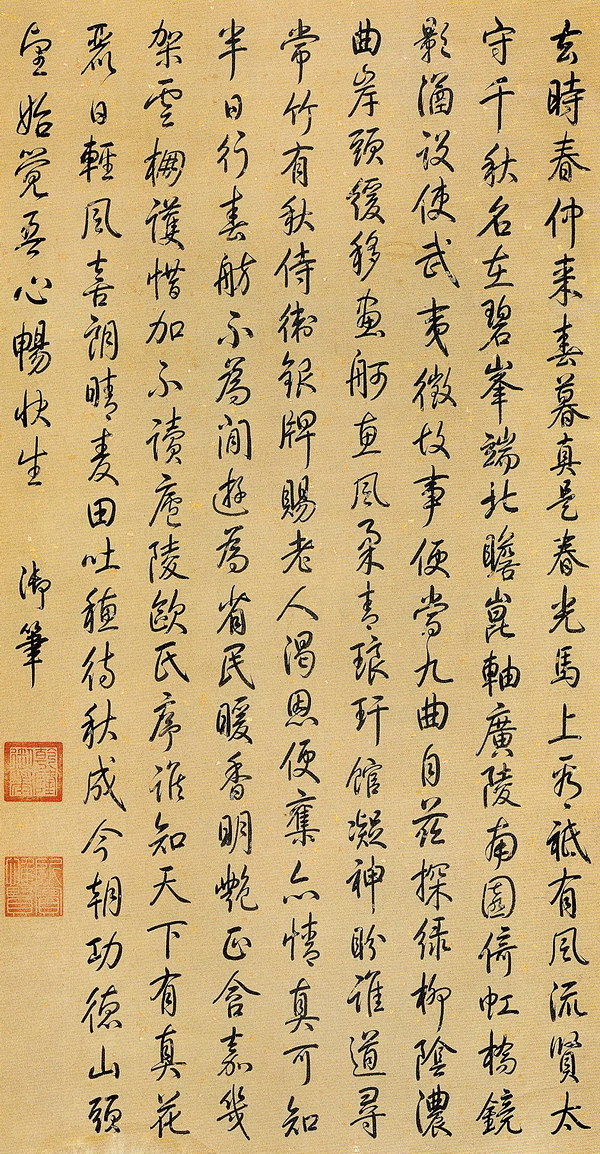 去時春仲来春暮真是春光馬上看祗有風流賢太
守千秋名在碧峯端北瞻崑軸廣陵南園倚虹橋鏡
影涵設使武夷徵故事便當九曲自茲探緑柳陰濃
曲岸頭緩移畫舸惠風柔青琅玕館凝神盼誰道尋
常竹有秋侍衛銀牌賜老人渴恩便集亦情真可知
半日行春舫不為閒遊為省民暖香明艶正含嘉幾
架雲棚護惜加不讀廬陵歐氏序誰知天下有真花
麗日輕風喜朗晴麦田吐穗待秋成今朝功德山頭
望始覺吾心暢快生
御筆
乾隆御筆